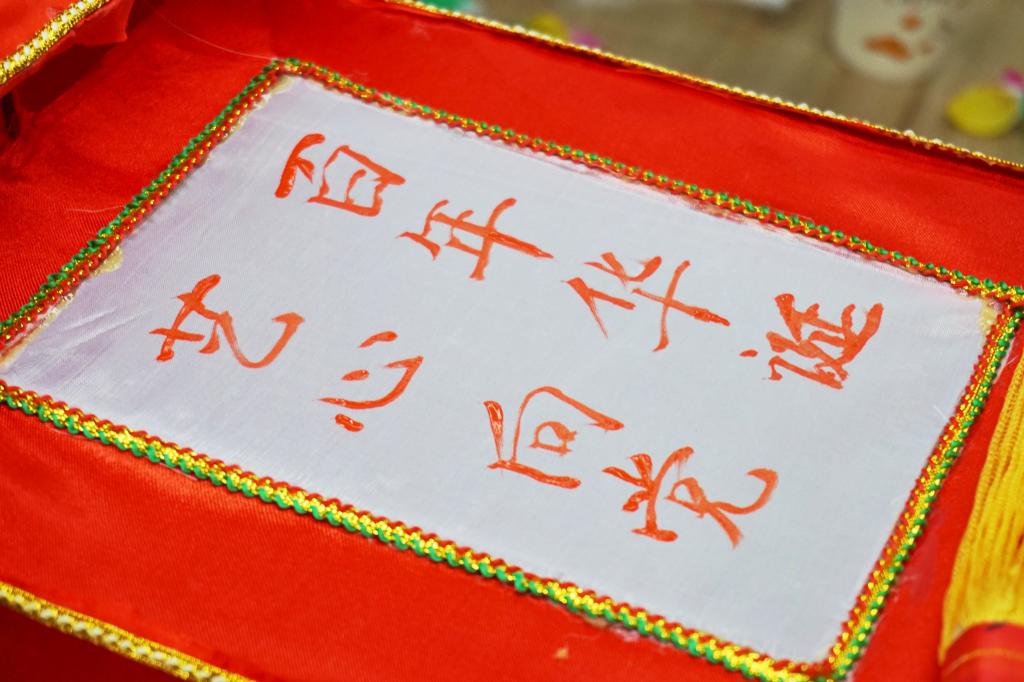 百年华诞
艺心向党